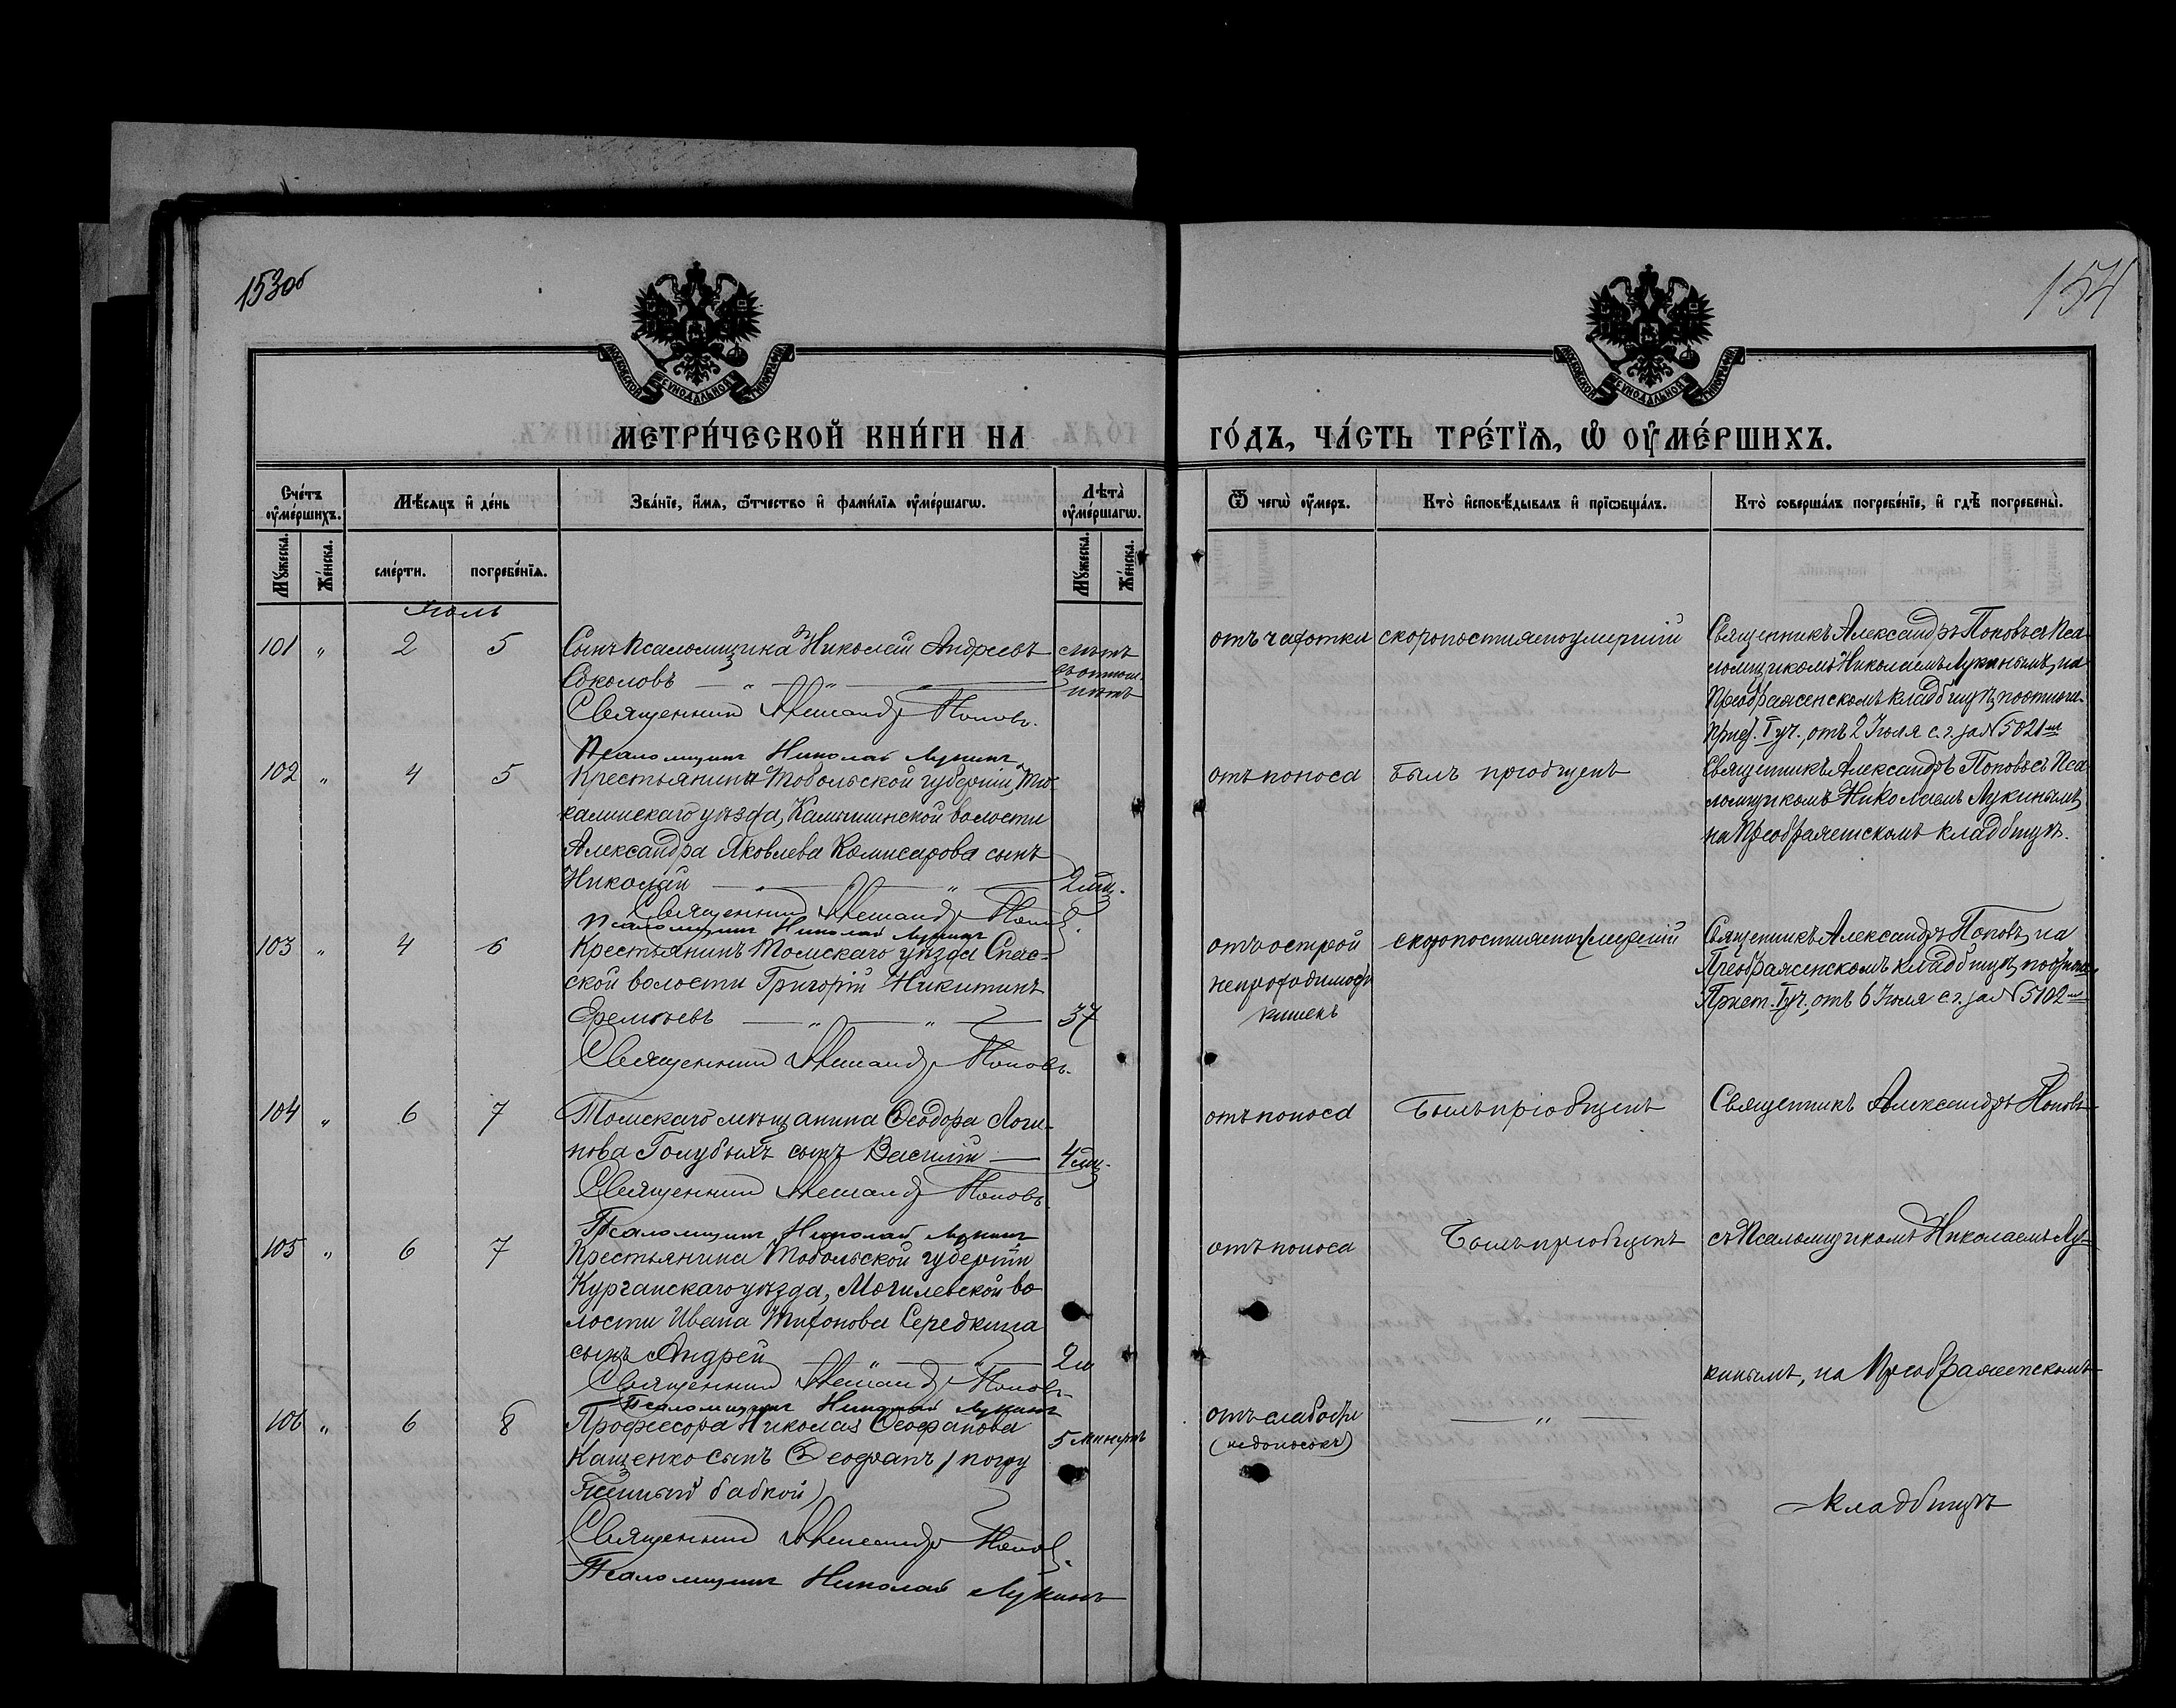 153об
154
МОСКОВСКОЙ СУНОДАЛЬНОЙ ТИПОГРАФІИ
МОСКОВСКОЙ СУНОДАЛЬНОЙ ТИПОГРАФІИ
МЕТРИ́ЧЕСКОЙ КНИ́ГИ НА
ГО́ДЪ, ЧА́СТЬ ТРЕ́ТІѦ, Ѡ҆ ОУ҆МЕ́РШИХЪ.
Сче́тъ оу҆ме́ршихъ.
Мѣ́сяцъ и҆ де́нь
Зва́нїе, и҆́мя, ѻ҆́тчество и҆ фами́лїя оу҆ме́ршагѡ.
Лѣта̀ оу҆ме́ршагѡ.
Ѿ чегѡ̀ оу҆́меръ.
Кто̀ и҆сповѣ́дывалъ и҆ прїѡбща́лъ.
Кто̀ соверша́лъ погребе́нїе, и҆ гдѣ̀ погребены̀.
Мꙋ́жеска.
Же́нска.
сме́рти.
погребе́нїя.
Мꙋ́жеска.
Же́нска.
Іюль
101 " 2 5 Сынъ Псаломщика Николай Андреевъ
Соколовъ — " — " —
Священникъ Александръ Поповъ.
Псаломщикъ Николай Лукинъ
отъ чахотки скоропостижно умершій
Священникъ Александръ Поповъ съ Пса-
ломщикомъ Николаемъ Лукинымъ, на
Преображенскомъ кладбищѣ,
I уч., отъ 2 Іюля с. г. за № 5021
102 " 4 5 Крестьянина Тобольской губерніи, Тю-
калинскаго уѣзда, Камышинской волости
Александра Яковлева Комисарова сынъ
Николай — " — " — 2 мц.
Священникъ Александръ Поповъ.
Псаломщикъ Николай Лукинъ
отъ поноса былъ пріобщенъ
Священникъ Александръ Поповъ съ Пса
ломщикомъ Николаемъ Лукинымъ,
на Преображенскомъ кладбищѣ.
103 " 4 6 Крестьянинъ Томскаго уѣзда Спас-
ской волости Григорій Никитинъ
Еремѣевъ — " — " — 37
Священникъ Александръ Поповъ.
отъ острой
непроходимости
кишекъ
скоропостижно умершій
Священникъ Александръ Поповъ, на
Преображенскомъ кладбищѣ,
I уч., отъ 6 Іюля с. г. за № 5102
104 " 6 7 Томскаго мѣщанина Ѳеодора Логи-
нова Голубыхъ сынъ Василій — 4 мц.
Священникъ Александръ Поповъ
Псаломщикъ Николай Лукинъ
отъ поноса Былъ пріобщенъ Священникъ Александръ Поповъ
105 " 6 7 Крестьянина Тобольской губерніи
Курганскаго уѣзда, Могилевской во
лости Ивана Тихонова Середкина
сынъ Андрей — " — " — 2 м
Священникъ Александръ Поповъ
Псаломщикъ Николай Лукинъ
отъ поноса Былъ пріобщенъ съ Псаломщикомъ Николаемъ Лу-
кинымъ, на Преображенскомъ
106 " 6 8 Профессора Николая Ѳеофанова
Кащенко сынъ Ѳеофанъ (погру
женный бабкой)
5 минутъ
Священникъ Александръ Поповъ.
Псаломщикъ Николай Лукинъ
отъ слабости
(недоносокъ)
— " —
кладбищѣ